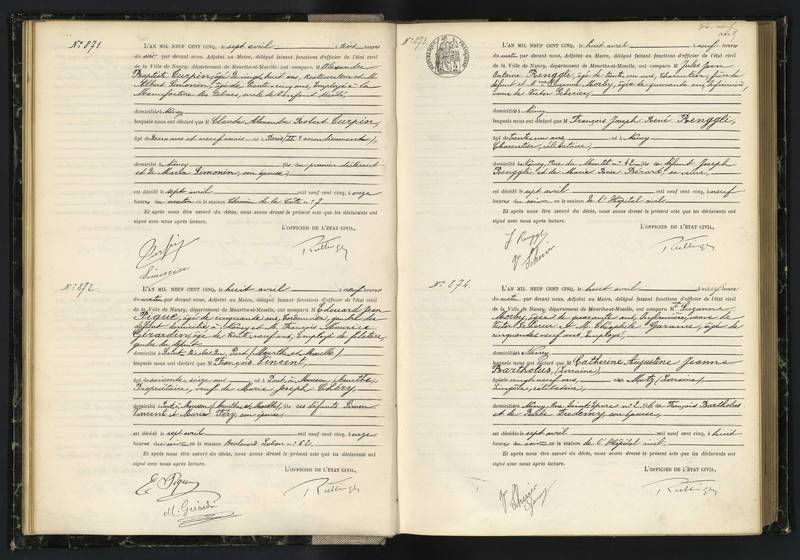 N° 871.
L'AN MIL NEUF CENT CINQ, le sept avril à trois heures
du soir par devant nous, Adjoint au Maire, délégué faisant fonctions d'officier de l'état civil
de la Ville de Nancy, département de Meurthe-et-Moselle, ont comparu M Alexandre
Baptiste Curpin, âgé de vingt huit ans, Restaurateur et M.
Albert Simonin, âgé de trente cinq ans, Employé à la
Manufacture des Tabacs, oncle de l'enfant décédé,
domiciliés à Nancy
lesquels nous ont déclaré que Claude Alexandre Robert Curpin,
âgé de deux ans et neuf mois né à Paris
domicilié à Nancy fils du premier déclarant
et de Maria Simonin, son épouse,
est décédé le sept avril mil neuf cent cinq, à onze
heures du matin en la maison Chemin de la Côte n° 7
Et après nous être assuré du décès, nous avons dressé le présent acte que les déclarants ont
signé avec nous après lecture.
L'OFFICIER DE L'ÉTAT CIVIL,
N° 872.
L'AN MIL NEUF CENT CINQ, le huit avril à neuf heures
du matin par devant nous, Adjoint au Maire, délégué faisant fonctions d'officier de l'état civil
de la Ville de Nancy, département de Meurthe-et-Moselle, ont comparu M Edouard Jean
âgé de cinquante ans, Cordonnier, gendre du
défunt domicilié à Nancy et M. François Maurice
Gérardin, âgé de trente neuf ans, Employé de filature,
gendre du défunt
domicilié à Saint Nicolas du Port (Meurthe et Moselle)
lesquels nous ont déclaré que M François Vincent,
âgé de soixante seize ans né à Pont à Mousson (Meurthe)
Propriétaire, veuf de Marie Joseph Chéry,
domicilié à Pont à Mousson (Meurthe et Moselle) fils des défunts Simon
Vincent et Marie Féry, son épouse,
est décédé le sept avril mil neuf cent cinq, à onze
heures du soir en la maison Boulevard Lobau n° 62
Et après nous être assuré du décès, nous avons dressé le présent acte que les déclarants ont
signé avec nous après lecture.
L'OFFICIER DE L'ÉTAT CIVIL,
N° 873.
RÉPUBLIQUE FRANÇAISE
L'AN MIL NEUF CENT CINQ, le huit avril à neuf heures
du matin par devant nous, Adjoint au Maire, délégué faisant fonctions d'officier de l'état civil
de la Ville de Nancy, département de Meurthe-et-Moselle, ont comparu M Jules Jean
Antoine Renggle, âgé de trente un ans, Charcutier, frère du
défunt et Mme Suzanne Morby, âgée de quarante ans, Infirmière,
veuve de Victor Scherier,
domiciliés à Nancy
lesquels nous ont déclaré que M François Joseph René Renggle,
âgé de trente un ans né à Nancy
Charcutier, célibataire,
domicilié à Nancy, Rue de Montet n° 42 fils de défunt Joseph
Renggle et de Marie Rose Bérard, sa veuve,
est décédé le sept avril mil neuf cent cinq, à neuf
heures du soir en la maison de l'Hôpital civil.
Et après nous être assuré du décès, nous avons dressé le présent acte que les déclarants ont
signé avec nous après lecture.
L'OFFICIER DE L'ÉTAT CIVIL,
N° 874.
L'AN MIL NEUF CENT CINQ, le huit avril à neuf heures
du matin par devant nous, Adjoint au Maire, délégué faisant fonctions d'officier de l'état civil
de la Ville de Nancy, département de Meurthe-et-Moselle, ont comparu Mme Suzanne
Morby, âgée de quarante ans, Infirmière, veuve de
Victor Scherier et M. Théophile Garanne, âgé de
cinquante neuf ans, Employé,
domiciliés à Nancy
lesquels nous ont déclaré que M Catherine Augustine Jeanne
Bartholus
âgée de vingt neuf ans, née à Metz (Lorraine)
Lingère, célibataire,
domiciliée à Nancy, Rue Saint Epvre n° 2 fille de François Bartholus
son épouse,
est décédée le sept avril mil neuf cent cinq, à huit
heures du soir en la maison de l'Hôpital civil.
Et après nous être assuré du décès, nous avons dressé le présent acte que les déclarants ont
signé avec nous après lecture.
L'OFFICIER DE L'ÉTAT CIVIL,